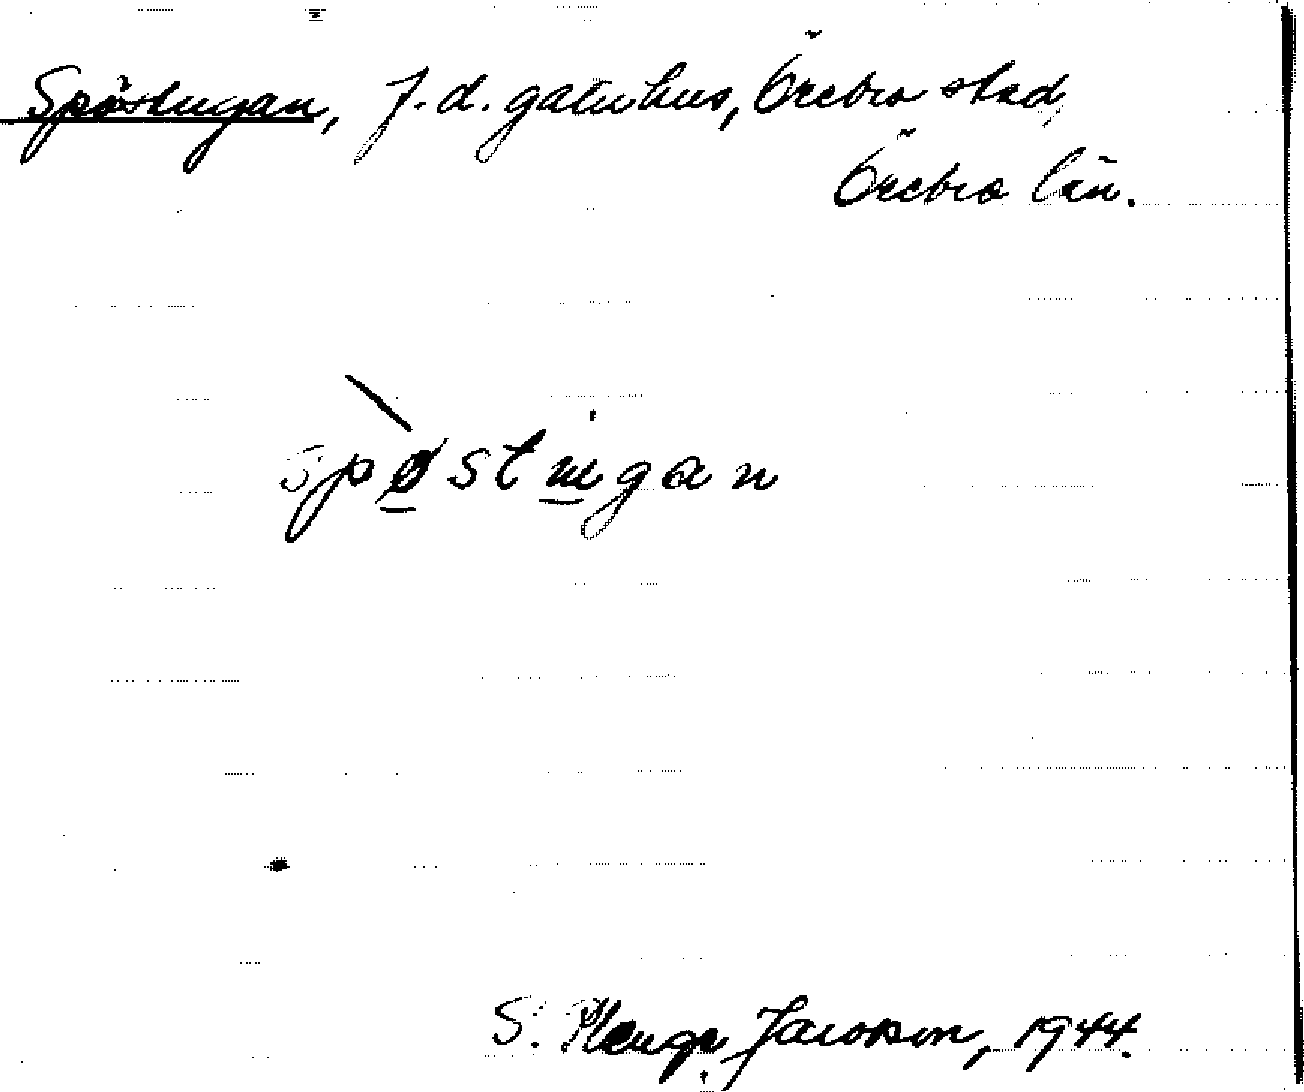 Spöstugan, f.d. gatuhus, Örebro stad,
Örebro län.
spøstugan
S. Plenge Jacobson, 1944.